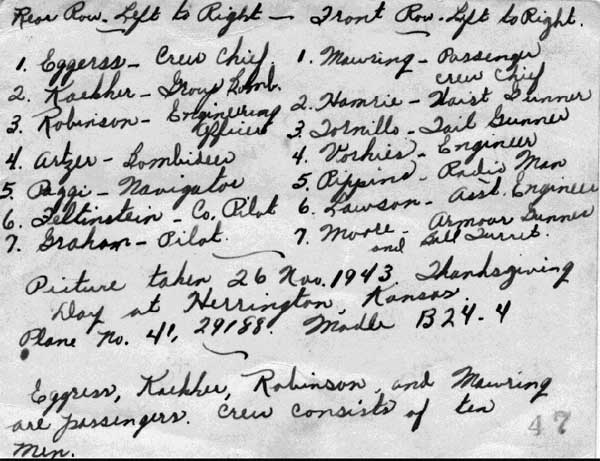 Rear Row - Left to Right - Front Row - Left to Right.
1. Eggerss - Crew Chief. 1. Mowring - Passenger crew Chief
2. Koekher - Group Bomb. 2. Hamrie - Waist Gunner
3. Robinson - Engineering Officer 3. Tornillo - Tail Gunner
4. Artzer - Bombideer 4. Vorhies - Engineer
5. Poggi - Navigator 5. Pippins - Radio Man
6. Feltinstein - Co. Pilot 6. Lawson - Asst. Engineer
7. Graham - Pilot. 7. Moore - Armour Gunner and Ball Turret.
Picture taken 26 Nov. 1943 Thanksgiving
Day at Herrington, Kansas.
Plane No. 41, 29188. Modle B24-4
Eggress, Koekher, Robinson, and Mowring
are passengers. Crew consists of ten
men.
47